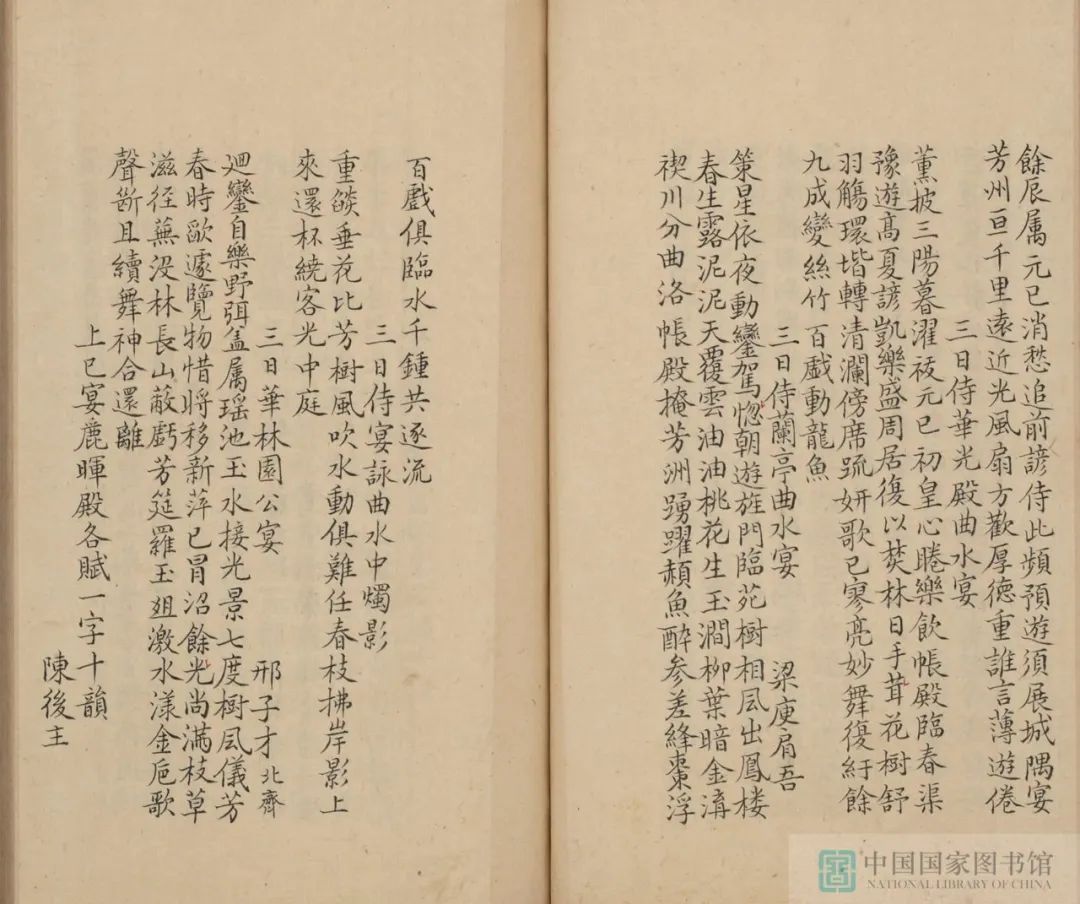 餘辰属元巳消愁追前諺侍此頻預遊須展城隅宴
芳州亘千里遠近光風扇方歡厚德重誰言薄遊倦
三日侍華光殿曲水宴
薰拔三陽暮濯祓元巳初皇心睠樂飲帳殿臨春渠
豫遊髙夏諺凱樂盛周居復以焚林日丰茸花樹舒
羽觴環堦轉清瀾傍席踈妍歌已寥亮妙舞復紆餘
九成變絲竹百戲動龍魚
三日侍蘭亭曲水宴 梁庾肩吾
策星依夜動鑾駕惚朝遊旌門臨苑樹相風出鳳楼
春生露泥泥天覆雲油油桃花生玉澗柳葉暗金溝
禊川分曲洛帳殿掩芳洲踴躍頳魚醉参差絳棗浮
百戲俱臨水千鍾共逐流
三日侍宴詠曲水中燭影
重燄垂花比芳樹風吹水動俱難任春枝拂岸影上
來還杯繞客光中庭
三日華林園公宴 邢子才北齊
廻鑾自樂野弭盖属瑶池玉水接光景七度樹風儀芳
春時歇遽覽物惜將移新萍已冒沼餘光尚滿枝草
滋径蕪没林長山蔽虧芳筵羅玉俎激水漾金巵歌
聲斷且續舞神合還離
上巳宴鹿暉殿各賦一字十韻
陳後主
中国国家图书馆
NATIONAL LIBRARY OF CHINA